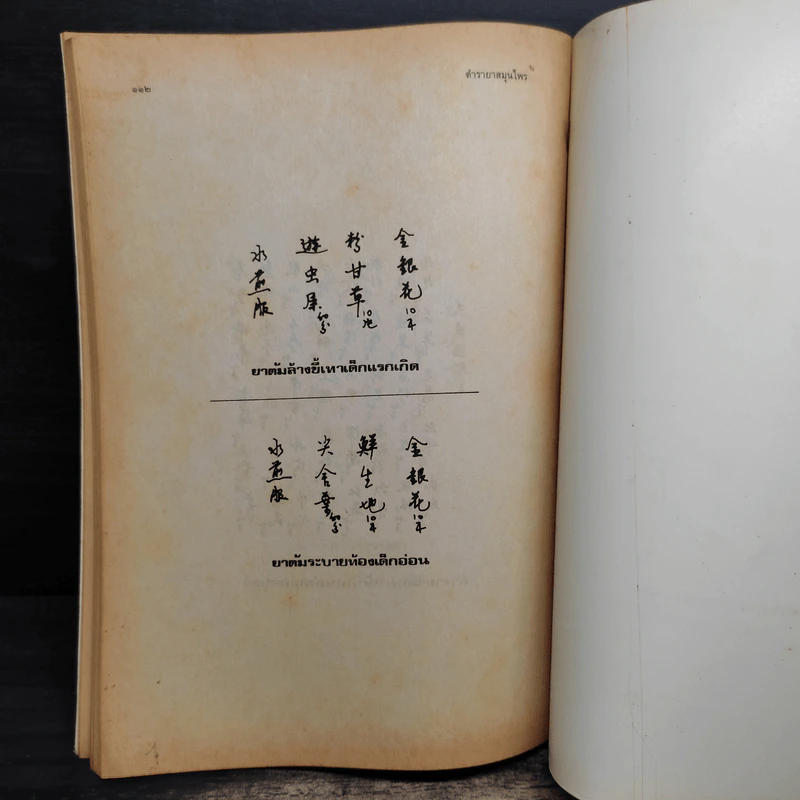 ๑๑๒
ตำรายาสมุนไพร
金銀花
粉甘草
遊虫屎
水煎服
ยาต้มล้างขี้เทาเด็กแรกเกิด
金銀花
鮮生地
尖舍葉
水煎服
ยาต้มระบายท้องเด็กอ่อน